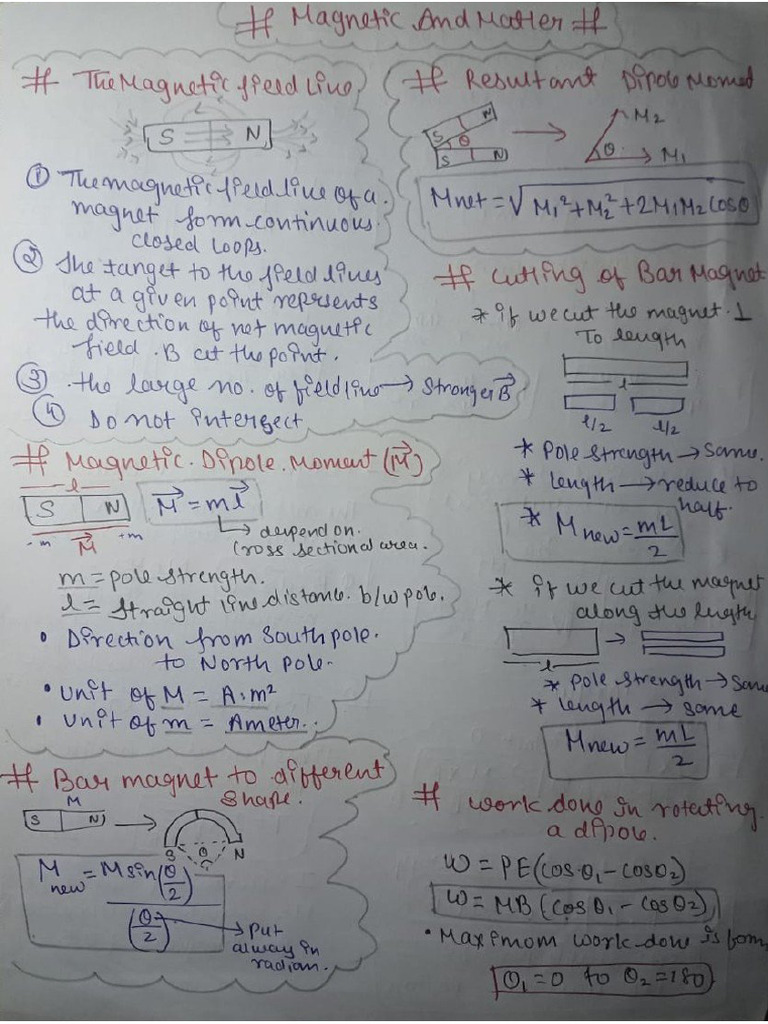 # Magnetic And Matter #
# The Magnetic field line
S N
① The magnetic field line of a
magnet form continuous
closed loops.
② The tanget to the field lines
at a given point reprsents
the direction of net magnetic
field .B at the point.
③ the large no. of field line → Stronger B⃗
④ Do not intersect
# Magnetic Dipole Moment (M⃗)
l
S N
M⃗ = ml⃗
-m M⃗ +m
↳ depend on
Cross sectional area.
m = pole strength.
l = straight line distance b/w pole.
• Direction from South pole
to North pole.
• Unit of M = A.m²
• Unit of m = Ameter.
# Bar magnet to different
Shape.
M
S N
S θ N
M new = M sin(θ/2) / (θ/2)
→ Put
always in
radian.
# Resultant Dipole Moment
S N
θ
S N
M₂
θ M₁
Mnet = √M₁²+M₂²+2M₁M₂ cosθ
# Cutting of Bar Magnet
* if we cut the magnet ⊥
To length
l
l/2 l/2
* Pole strength → Same.
* length → reduce to
half.
* M new = mL/2
* if we cut the magnet
along the length
l
* pole strength → Same
* length → same
M new = mL/2
# work done in rotating
a dipole.
W = PE(cosθ₁ - cosθ₂)
W = MB (cosθ₁ - cosθ₂)
• Maximom work done is
θ₁ = 0 to θ₂ = 180